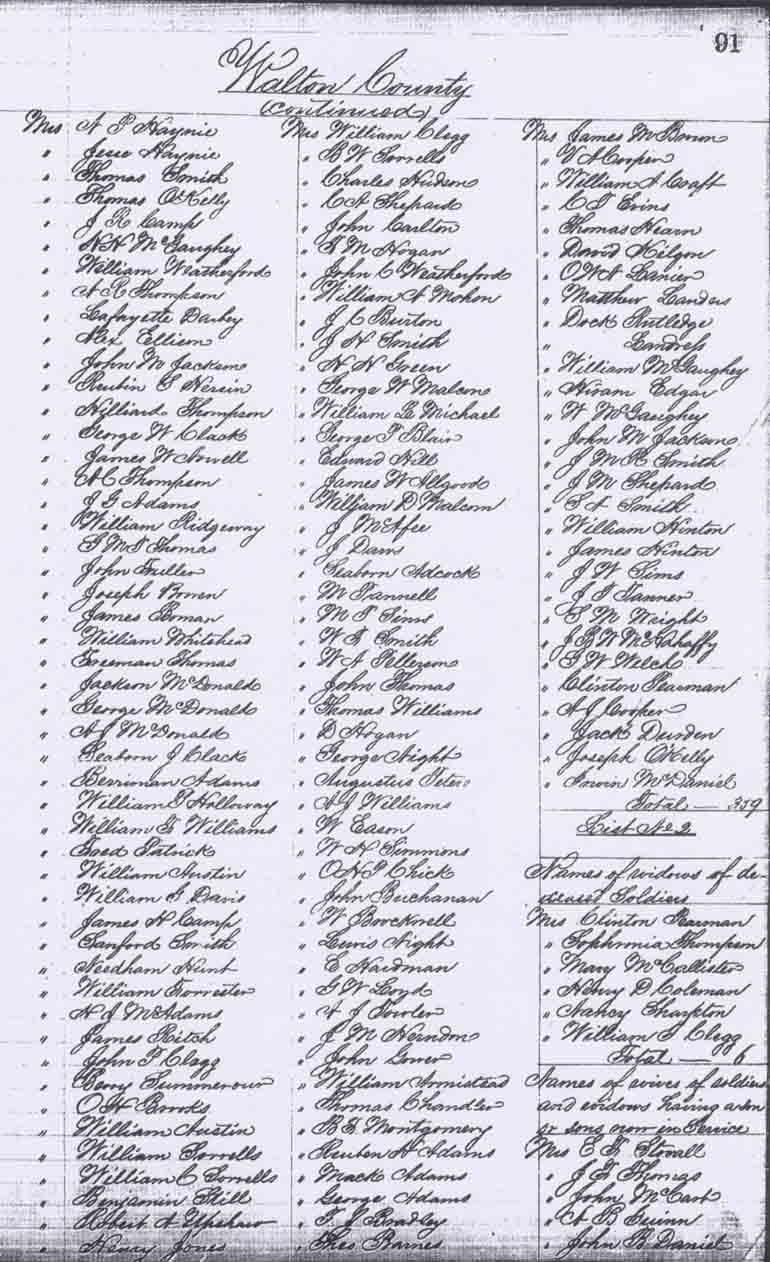 91
Walton County
(continued)
Mrs A P Haynie
" Jesse Haynie
" Thomas Smith
" Thomas O'Kelly
" J R Camp
" H H McGaughey
" William Weatherford
" A R Thompson
" Lafayette Darby
" Alex Ellison
" John M Jackson
" Reubin E Herein
" Hilliard Thompson
" George W Clack
" James W Nowell
" A C Thompson
" J G Adams
" William Ridgeway
" G M T Thomas
" John Fuller
" Joseph Bowen
" James Boman
" William Whitehead
" Freeman Thomas
" Jackson McDonald
" George McDonald
" A J McDonald
" Seaborn J Clack
" Berriman Adams
" William T Hollaway
" William F Williams
" Fred Patrick
" William Austin
" William G Davis
" James H Camp
" Sanford Smith
" Needham Hunt
" William Forrester
" H J McAdams
" James Ritch
" John T Clagg
" Berry Summerour
" O H Brooks
" William Austin
" William Sorrells
" William C Sorrells
" Benjamin Still
" Robert A Upshaw
" Henry Jones
Mrs William Clegg
" B W Sorrells
" Charles Hudson
" C A Shepard
" John Carlton
" S M Hogan
" John C Weatherford
" William A Mohon
" J C Burton
" J H Smith
" H H Green
" George W Malcom
" William Le Michael
" George P Blair
" Edward Hill
" James W Allgood
" William D Malcom
" J McAfee
" J Daws
" Seaborn Adcock
" M Fannell
" M P Sims
" W S Smith
" W A Pellerson
" John Thomas
" Thomas Williams
" D Hogan
" George Night
" Augustus Peters
" A J Williams
" W Eason
" W H Simmons
" O H P Chick
" John Buchanan
" W Brocknell
" Lewis Night
" E Hardman
" G W Loyd
" A J Fowler
" J M Herndon
" John Gower
" William Armistead
" Thomas Chandler
" B F Montgomery
" Reuben H Adams
" Mack Adams
" George Adams
" T J Bradley
" Theo Barnes
Mrs James M Brown
" V A Cooper
" William A Craft
" C T Evins
" Thomas Hearn
" David Kilgore
" O W A Lanier
" Matthew Landers
" Dock Rutledge
" Landress
" William McGaughey
" Hiram Edgar
" W McGaughey
" John M Jackson
" J M R Smith
" J M Shepard
" S A Smith
" William Hinton
" James Hinton
" J W Sims
" J J Tanner
" E M Wright
" J G W McHahaffy
" G W Welch
" Clinton Pearman
" A J Cooper
" Jack Durden
" Joseph O'Kelly
" Irwin McDaniel
Total — 359
List No 2
Names of widows of de-
ceased Soldiers
Mrs Clinton Pearman
" Sophronia Thompson
" Mary McCallister
" Henry D Coleman
" Nancy Sharpton
" William T Clegg
Total — 6
Names of wives of soldiers
and widows having a son
or sons now in Service
Mrs E F Stovall
" J F Thomas
" John McCart
" A B Guinn
" John B Daniel